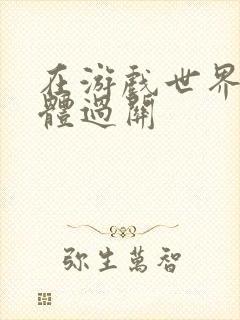 在游戲世界
體過關
弥生萬智